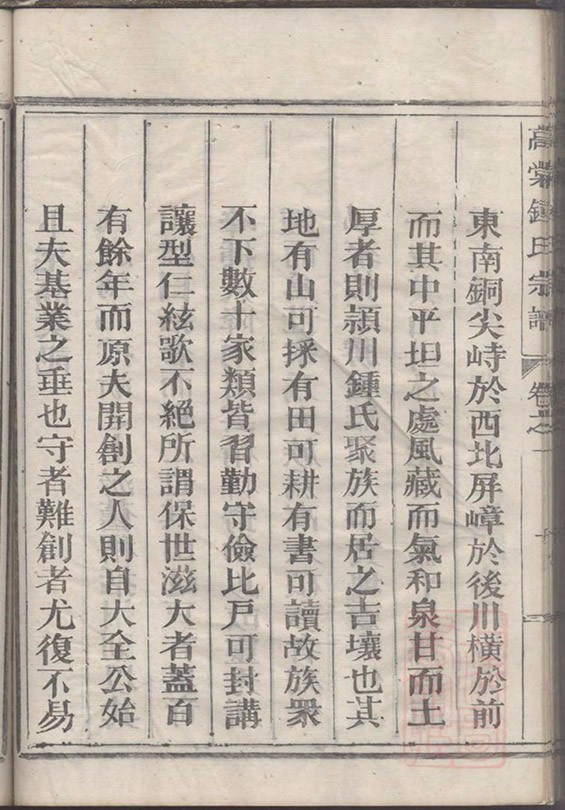 鍾氏宗譜 卷之一
東南銅尖峙於西北屏嶂於後川橫於前
而其中平坦之處風藏而氣和泉甘而土
厚者則潁川鍾氏聚族而居之吉壤也其
地有山可採有田可耕有書可讀故族衆
不下數十家類皆習勤守儉比戶可封講
讓型仁絃歌不絕所謂保世滋大者蓋百
有餘年而原夫開創之人則自大全公始
且夫基業之垂也守者難創者尤復不易